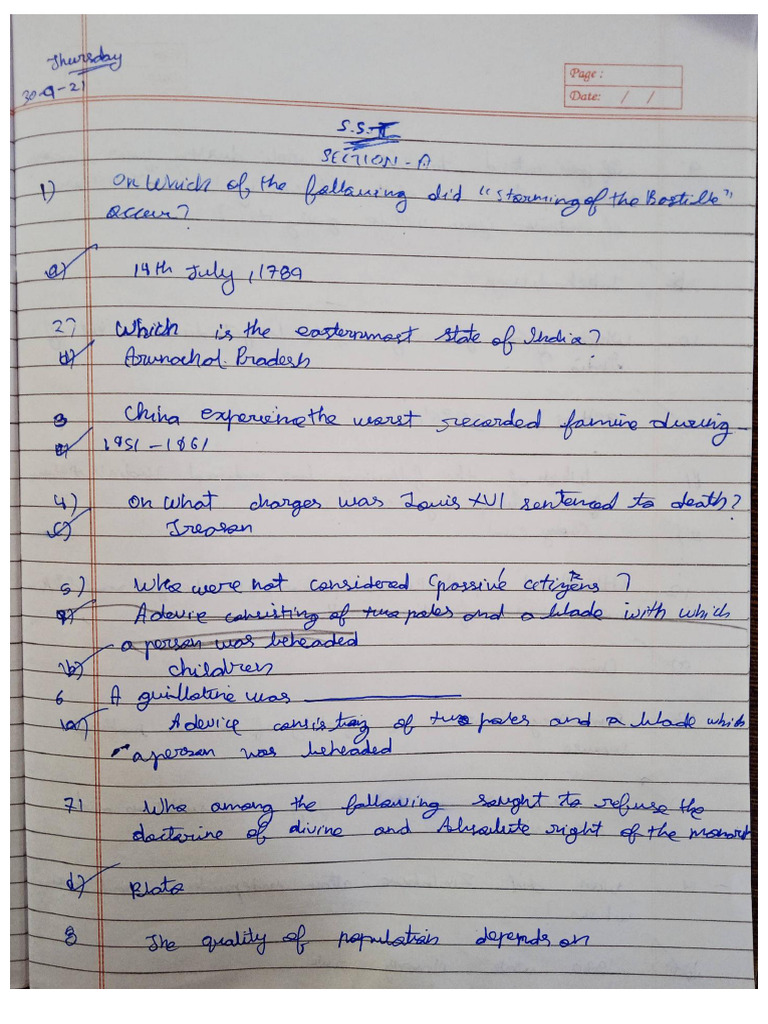 Thursday
30-9-21
Page :
Date: / /
S.S.T
SECTION-A
1) On which of the following did "Storming of the Bastille"
occur?
a) 14th July, 1789
2) Which is the easternmost state of India?
b) Arunachal Pradesh
3 China experience the worst recorded famine during -
c) 1951-1861
4) On what charges was Louis XVI sentenced to death?
c) Treason
5) Who were not considered (passive citizens?
A device consisting of two poles and a blade with which
a person was beheaded
b) children
6 A guillotine was
a) A device consisting of two poles and a blade which
a person was beheaded
7) Who among the following sought to refuse the
doctorine of divine and Absolute right of the monarch
d) Plato
8 The quality of population depends on